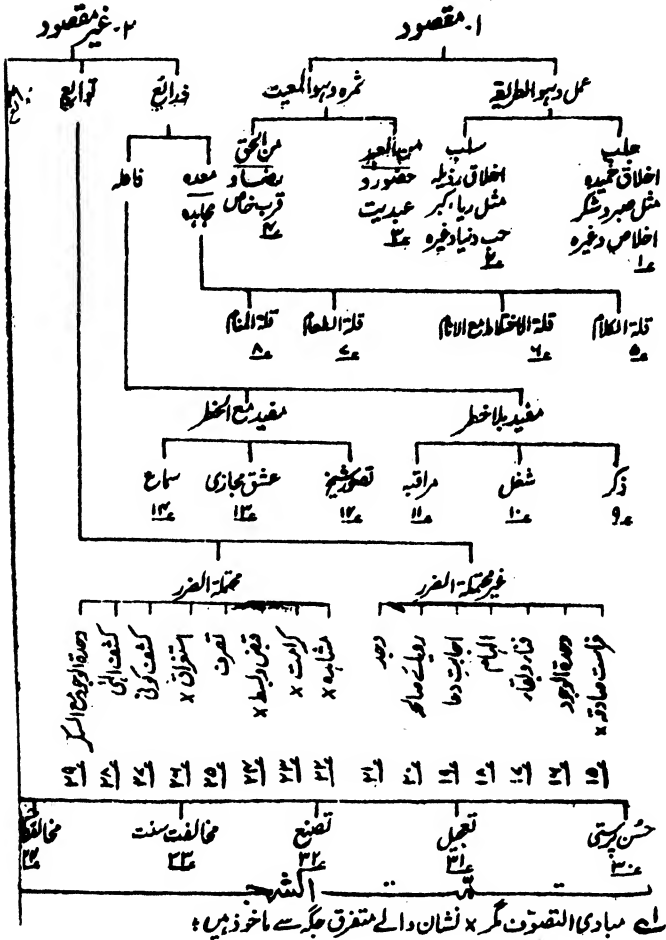 ۱۔ مقصود ۲۔ غیر مقصود
عمل وہو الطریقہ ثمرہ وہو المعیت ذرائع توابع
جلب
اخلاق حمیدہ
مثل صبر و شکر
اخلاص وغیرہ
۱؎
سلب
اخلاق رذیلہ
مثل ریا، کبر
حب دنیا وغیرہ
۲؎
من العبد
حضور و
عبدیت
۳؎
من الحق
رضا و
قرب خاص
۴؎
مجاہدہ
فاعلہ
قلۃ الکلام قلۃ الاختلاط مع الانام قلۃ الطعام قلۃ المنام
۵؎ ۶؎ ۷؎ ۸؎
مفید بلا خطر مفید مع الخطر
ذکر شغل مراقبہ تصور شیخ عشق مجازی سماع
۹؎ ۱۰؎ ۱۱؎ ۱۲؎ ۱۳؎ ۱۴؎
غیر محتملۃ الضرر محتملۃ الضرر
فراست صادقہ × وحدۃ الوجود فناء و بقاء الہام اجابت دعا رویائے صالحہ وجد مشاہدہ × کرامت × قبض و بسط × تصرف استغراق × کشف کونی کشف الٰہی وحدۃ الوجود مع السکر
۱۵؎ ۱۶؎ ۱۷؎ ۱۸؎ ۱۹؎ ۲۰؎ ۲۱؎ ۲۲؎ ۲۳؎ ۲۴؎ ۲۵؎ ۲۶؎ ۲۷؎ ۲۸؎ ۲۹؎
حسن پرستی تعجیل تصنع مخالفت سنت
۳۰؎ ۳۱؎ ۳۲؎ ۳۳؎
تمت الشجرہ
۱؎ مبادی التصوف مگر × نشان والے متفرق جگہ سے ماخوذ ہیں ؛